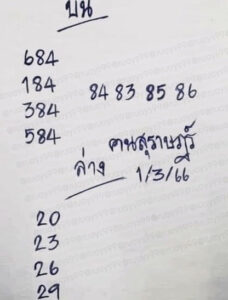 บน
684
184
384 84 83 85 86
584
คนสุราษฎร์
ล่าง 1/3/66
20
23
26
29